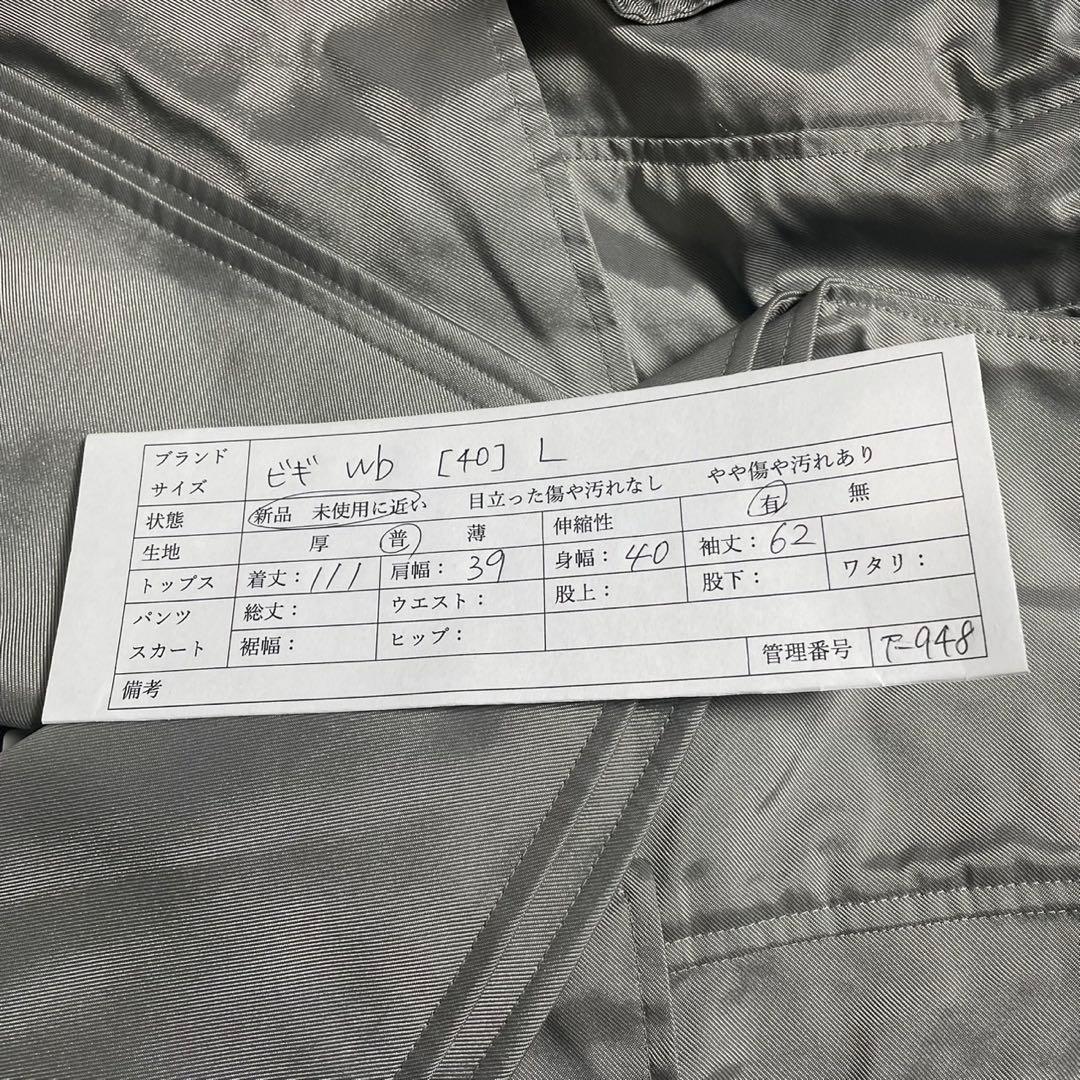 ブランド サイズ ビギ wb [40] L
状態 新品 未使用に近い 目立った傷や汚れなし やや傷や汚れあり
生地 厚 普 薄 伸縮性 有 無
トップス 着丈：111 肩幅：39 身幅：40 袖丈：62
パンツ 総丈： ウエスト： 股上： 股下： ワタリ：
スカート 裾幅： ヒップ：
備考 管理番号 -948